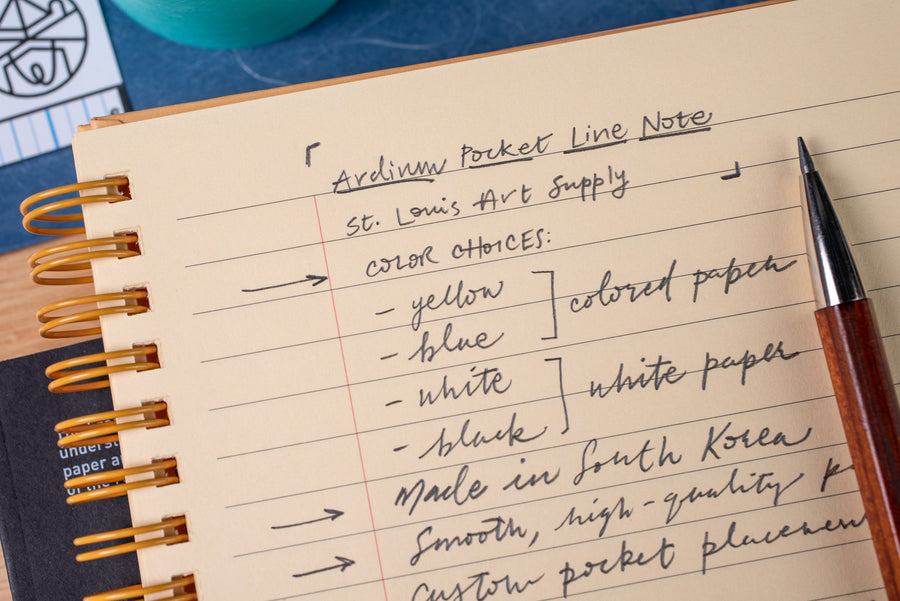 Ardium Pocket Line Note
St. Louis Art Supply
COLOR CHOICES:
- yellow
- blue
colored paper
- white
- black
white paper
Made in South Korea
Smooth, high-quality
Custom pocket placement
underst
paper a
of the